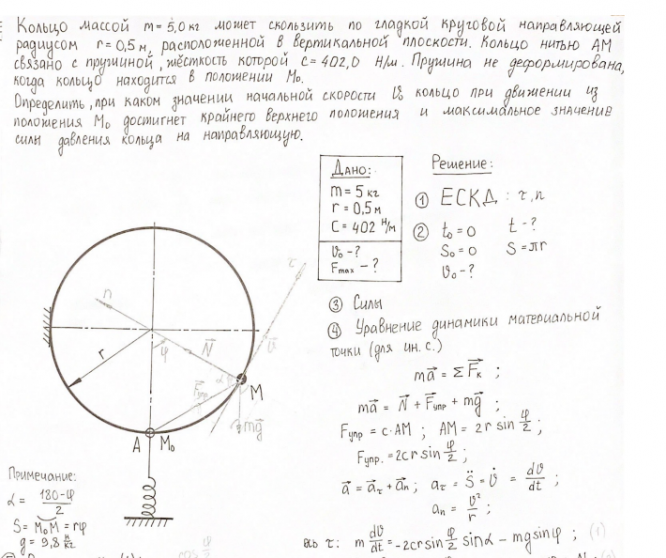 Кольцо массой m = 5,0 кг может скользить по гладкой круговой направляющей
радиусом r = 0,5 м, расположенной в вертикальной плоскости. Кольцо нитью АМ
связано с пружиной, жёсткость которой c = 402,0 Н/м. Пружина не деформирована,
когда кольцо находится в положении M₀.
Определить, при каком значении начальной скорости V₀ кольцо при движении из
положения M₀ достигнет крайнего верхнего положения и максимальное значение
силы давления кольца на направляющую.
Дано:
m = 5 кг
r = 0,5 м
C = 402 Н/м
V₀ - ?
Fmax - ?
Решение:
① ЕСКД : τ, n
② t₀ = 0 t - ?
S₀ = 0 S = πr
V₀ - ?
③ Силы
④ Уравнение динамики материальной
точки (для ин. с.)
ma⃗ = ΣF⃗ₖ ;
ma⃗ = N⃗ + F⃗упр + mg⃗ ;
Fупр = c·AM ; AM = 2r sin φ/2 ;
Fупр. = 2cr sin φ/2 ;
a⃗ = a⃗τ + a⃗n ; aτ = S̈ = V̇ = dV/dt ;
an = V²/r ;
ось τ: m dV/dt = -2cr sin φ/2 sinα - mg sinφ ; (1)
τ
n
N⃗
V⃗
φ
r
α
M
F⃗упр
mg⃗
A
M₀
Примечание:
α = 180-φ/2
S = M₀M = rφ
g = 9,8 м/кг